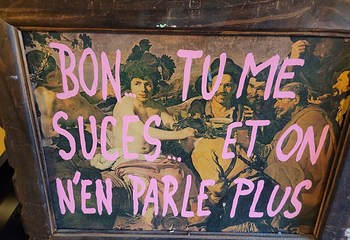 BON.. TU ME
SUCES... ET ON
N'EN PARLE PLUS